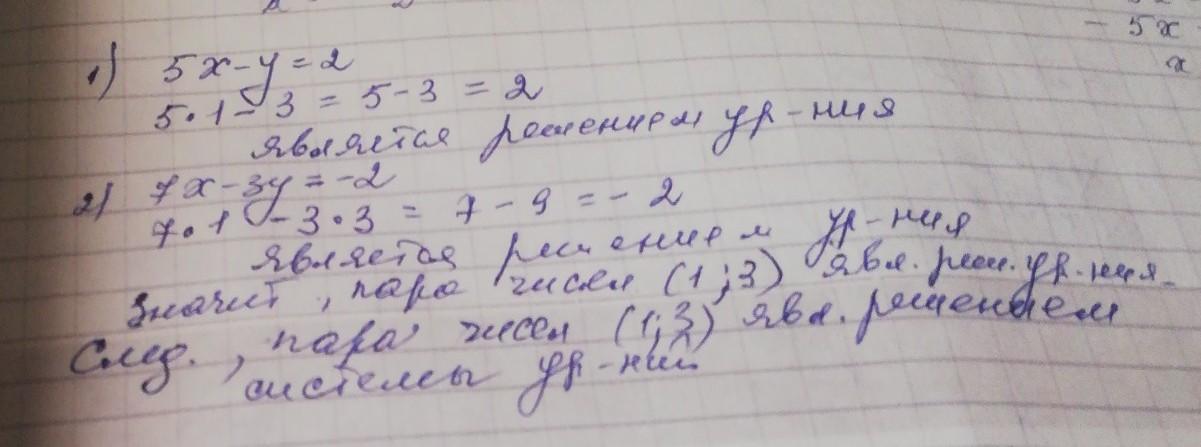 - 5x
x
1) 5x-y=2
5•1-3 = 5-3 = 2
является решением ур-ния
2) 7x-3y=-2
7•1-3•3 = 7-9 = -2
является решением ур-ния
Значит, пара чисел (1;3) явл. реш. ур-ния.
След., пара чисел (1;3) явл. решением
системы ур-ний